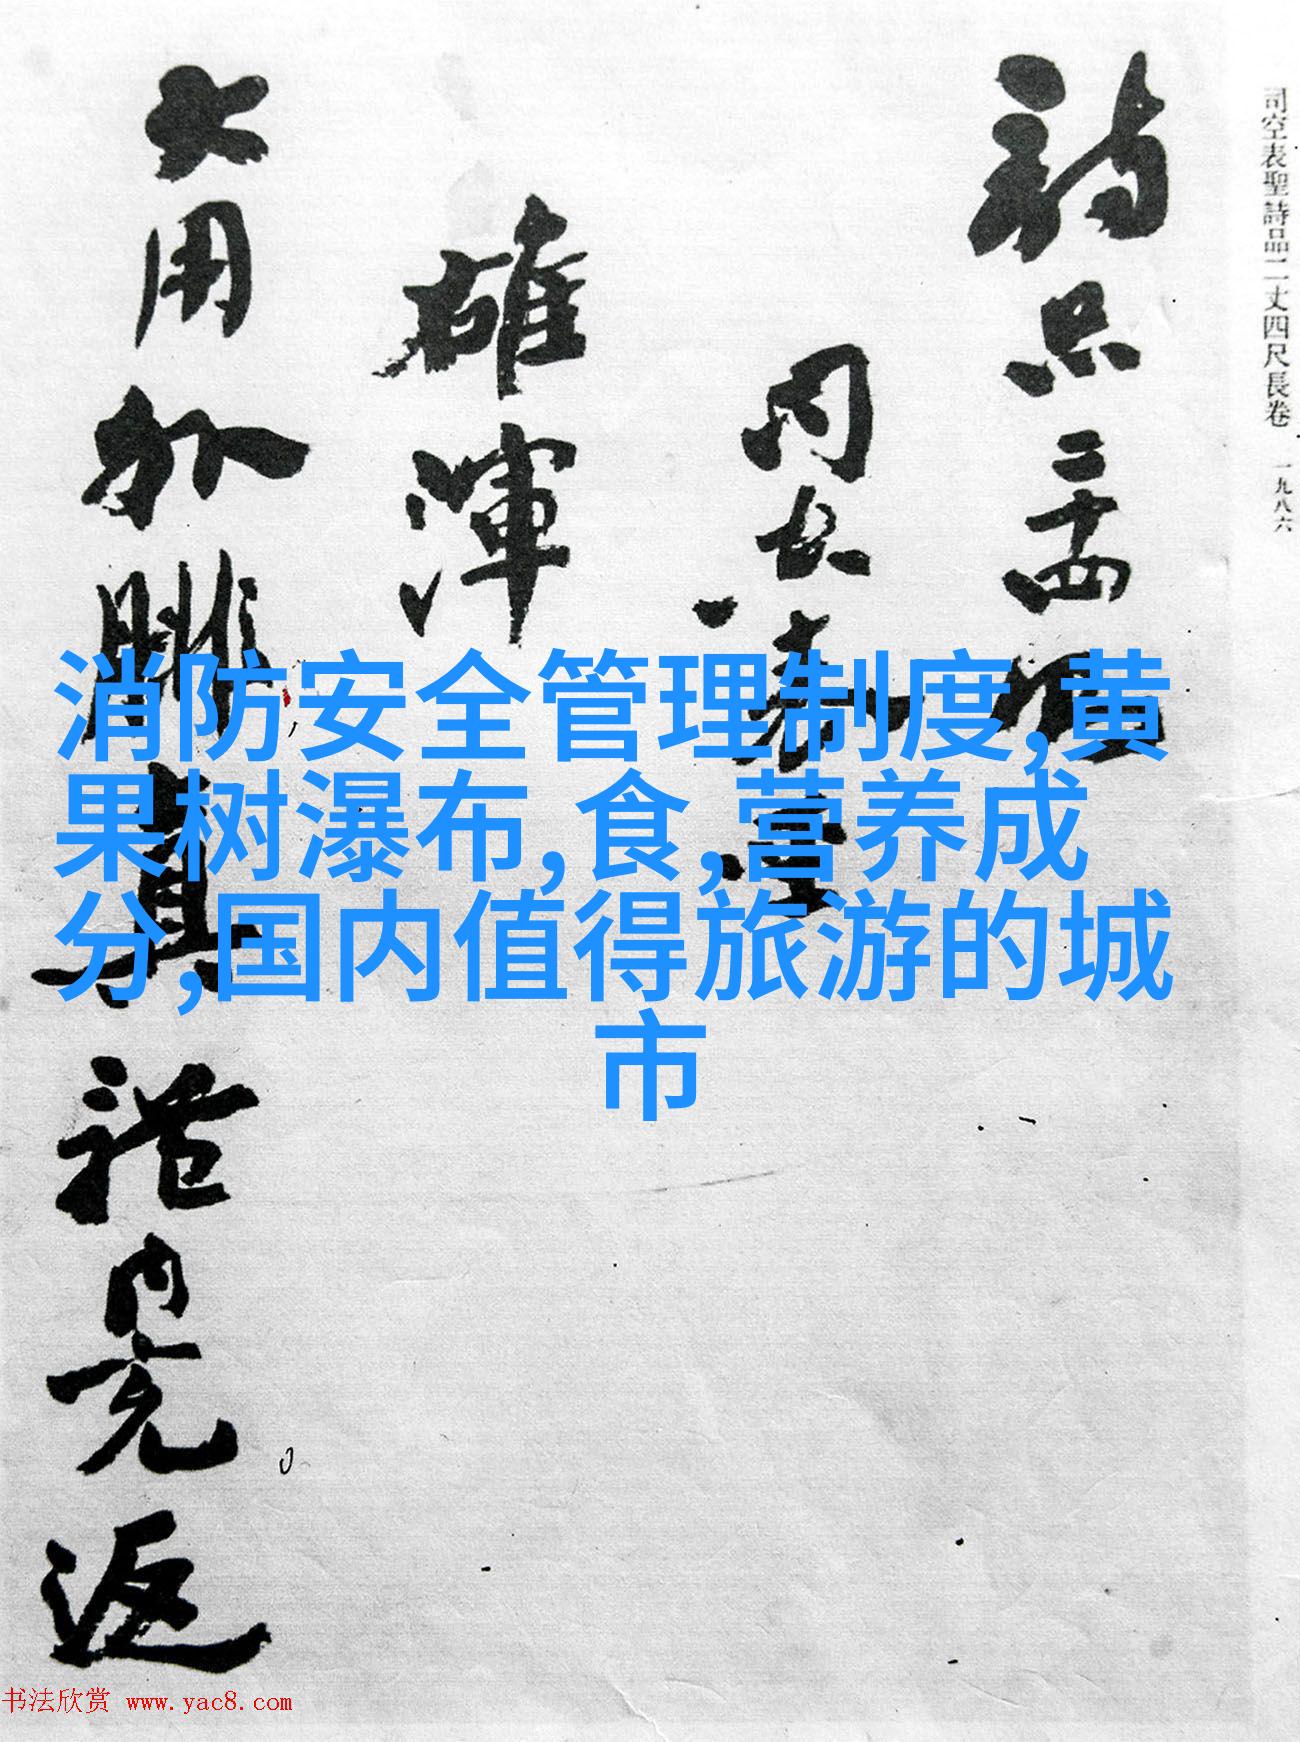 司空表聖詩品二丈四尺長卷 一九八六
詩品二十四
司空表聖
雄渾
大用外腓真體內充返
消防安全管理制度,黄
果树瀑布,食,营养成
分,国内值得旅游的城
市
书法欣赏 www.yac8.com